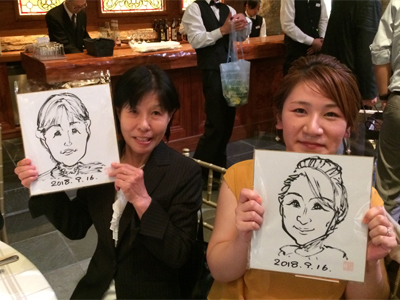 2018.9.16.
2018.9.16.